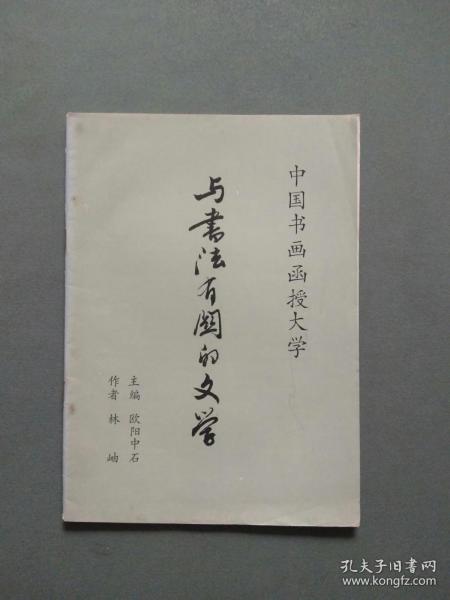 中国书画函授大学
与书法有関的文学
主编 欧阳中石
作者 林岫
孔夫子旧书网
www.kongfz.com